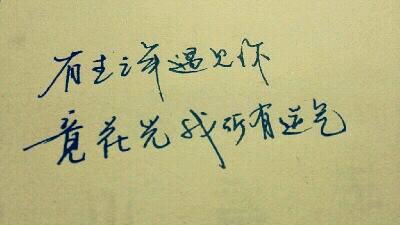 有生之年遇见你
竟花光我所有运气